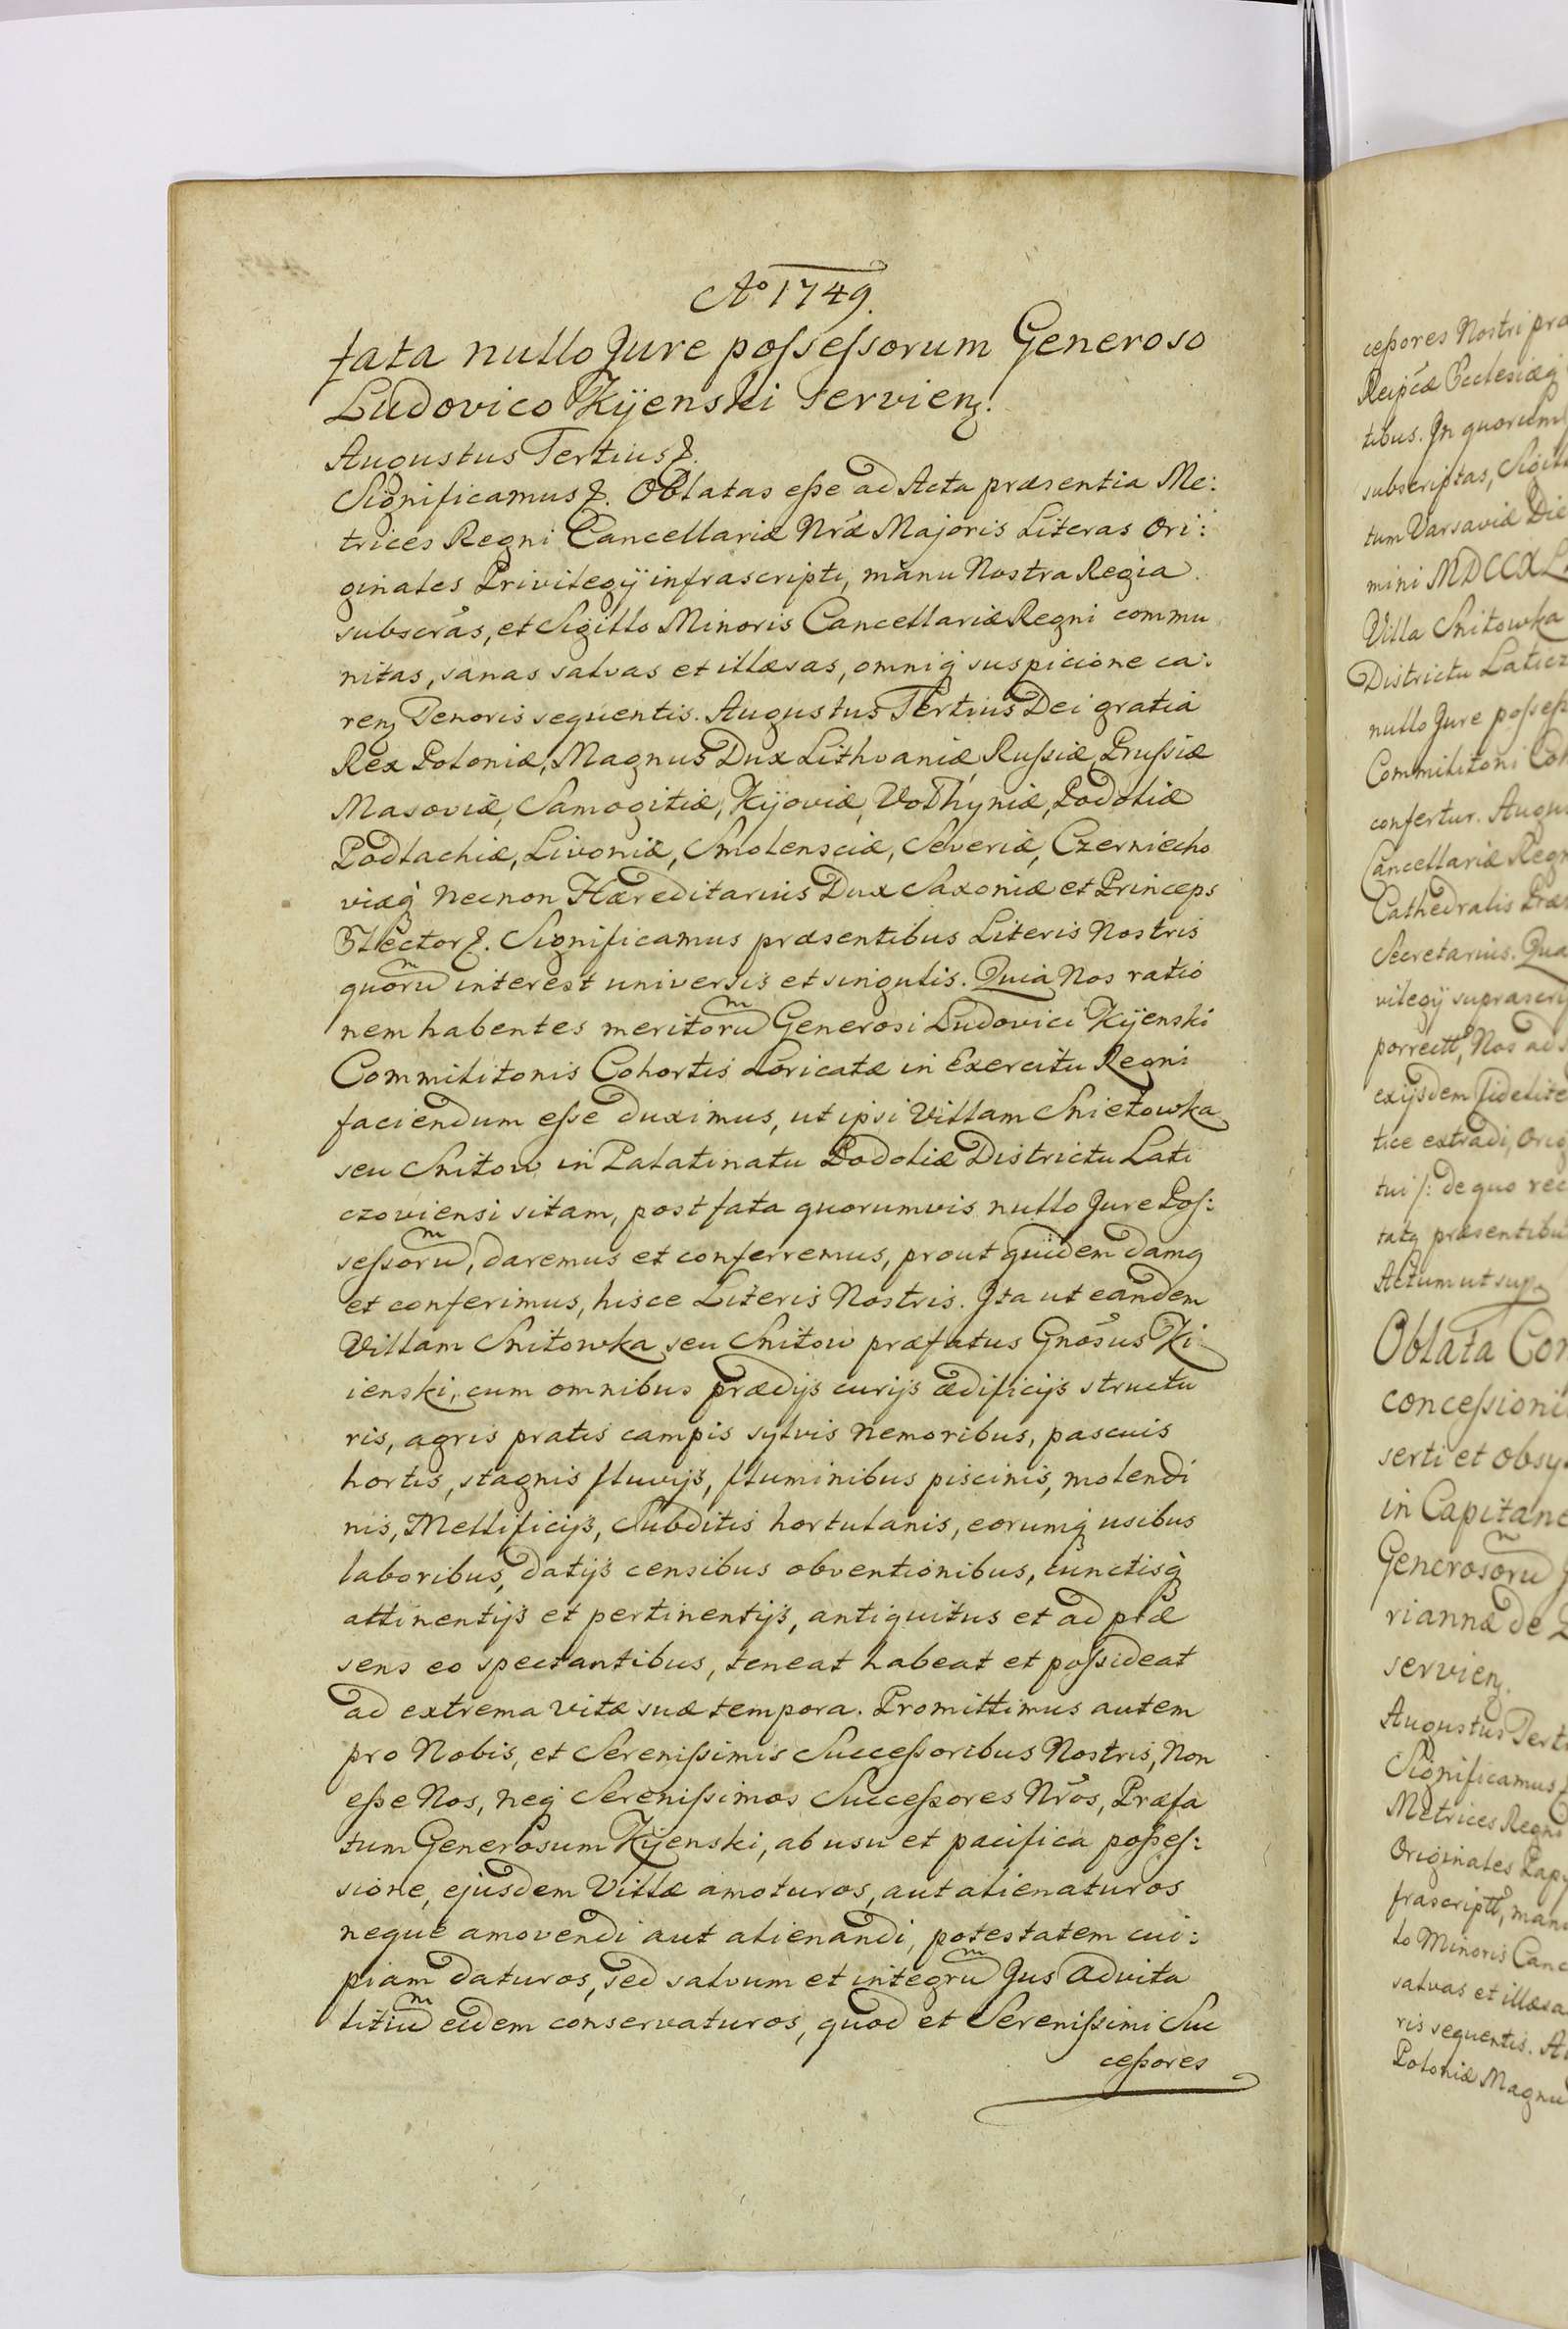 Aº 1749.
fata nullo Jure poſseſsorum Generoso
Ludovico Kÿenski servienꝫ.
Augustus Tertius ꝛ.
Significamus ꝛ. Oblatas eſse ad Acta præsentia Me:
trices Regni Cancellariæ Nræ Majoris Literas Ori:
ginales Privilegÿ infrascripti, manu Nostra Regia
subscras, et Sigillo Minoris Cancellariæ Regni commu
nitas, sanas salvas et illæsas, omniq́ suspicione ca:
renꝫ Tenoris sequentis. Augustus Tertius Dei gratia
Rex Poloniæ, Magnus Dux Lithvaniæ Ruſsiæ, Pruſsiæ
Masoviæ, Samogitiæ, Kijoviæ, Volhyniæ, Podoliæ
Podlachiæ, Livoniæ, Smolensciæ, Severiæ, Czerniecho
viæq́ necnon Hæreditarius Dux Saxoniæ et Princeps
Elector ꝛ. Significamus præsentibus Literis Nostris
quoru͞m interest universis et singulis. Quia Nos ratio
nem habentes meritoru͞m Generosi Ludovici Kÿenski
Commilitonis Cohortis Loricatæ in Exercitu Regni
faciendum eſse duximus, ut ipsi Villam Snietowka
seu Snitow in Palatinatu Podoliæ Districtu Lati
czoviensi sitam, post fata quorumvis nullo Jure Poſ:
seſsoru͞m, daremus et conferremus, prout quidem damq
et conferimus, hisce Literis Nostris. Ita ut eandem
Villam Snitowka seu Snitow præfatus Gnosus Ki
ienski, cum omnibus prædijs curijs ædificijs structu
ris, agris pratis campis sylvis nemoribus, pascuis
hortis, stagnis fluvijs, fluminibus piscinis, molendi
nis, Mellificijs, Subditis hortulanis, eorumq́ usibus
laboribus, datijs censibus obventionibus, cunctisq́
attinentijs et pertinentijs, antiquitus et ad præ
sens eo spectantibus, teneat habeat et poſsideat
ad extrema vitæ suæ tempora. Promittimus autem
pro Nobis, et Sereniſsimis Succeſsoribus Nostris, Non
eſse Nos, neq́ Sereniſsimos Succeſsores Nros, Præfa
tum Generosum Kijenski, ab usu et pacifica poſseſ:
sione, ejusdem Villæ amoturos, aut alienaturos
neque amovendi aut alienandi, potestatem cui:
piam daturos, sed salvum et integru͞m Jus Advita
litiu͞m eidem conservaturos, quod et Sereniſsimi Suc
ceſsores
ceſsores Nostri
Reipcæ Ecclesiæq
tibus. In quorum
subscriptas,
tum Varsaviæ Die
mini
Villa Snitowka
Districtu
nullo Jure
Commilitoni
confertur.
Cancellariæ
Cathedralis
Secretarius.
vilegÿ
porrectt, Nos
exijsdem
tice extradi,
tui ſ: de quo
tatq
Actum ut sup
Oblata
conceſsionis
serti et
in
Generosoru͞m
riannæ de
servienꝫ.
Augustus
Significamus
Metrices Regni
Originales
frascriptt,
to Minoris
salvas et
ris sequentis.
Poloniæ